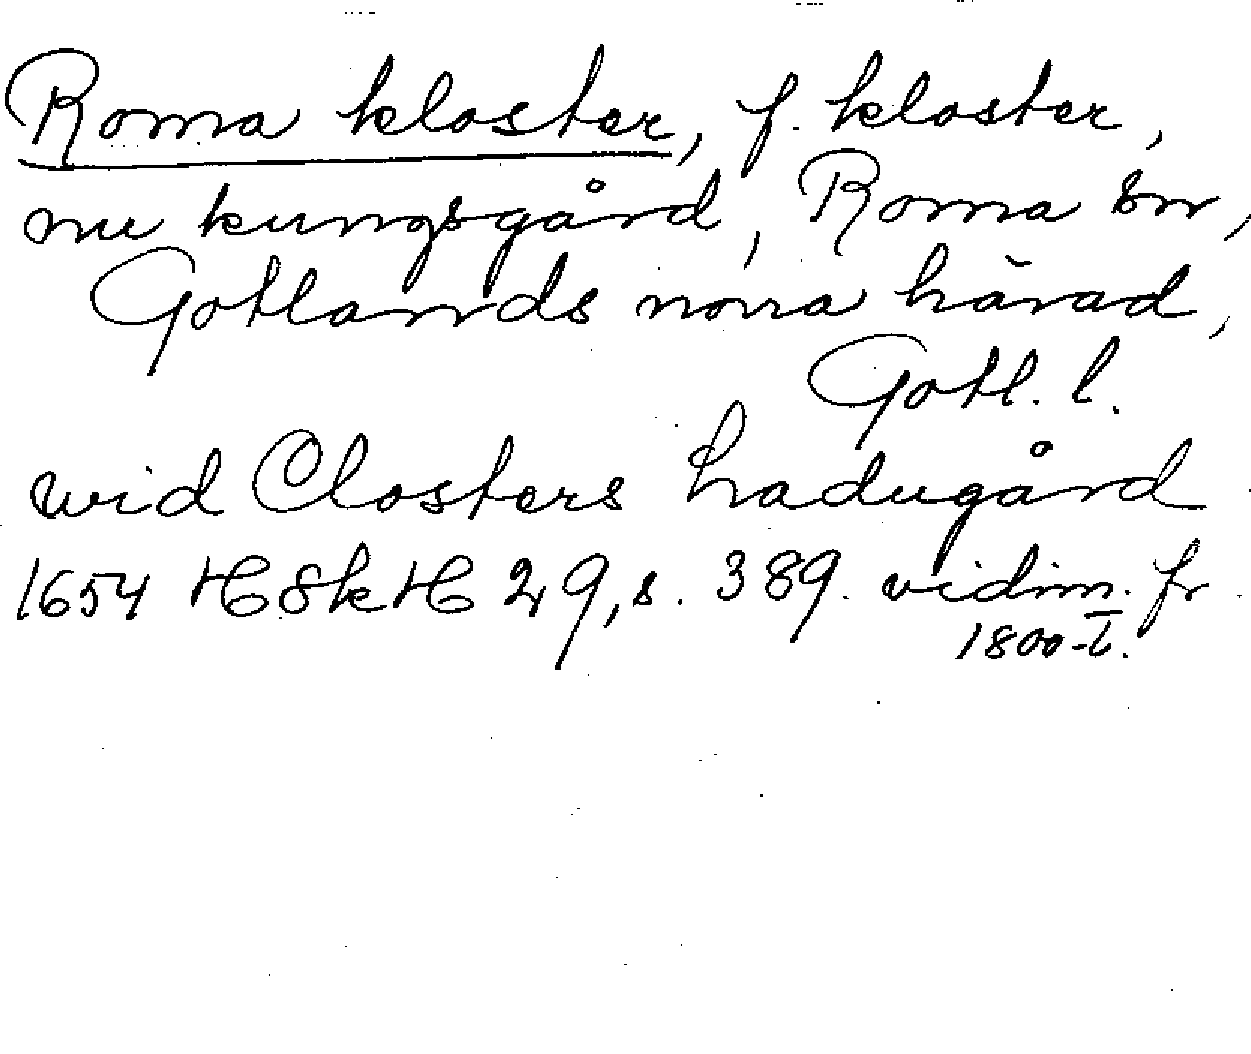 Roma kloster, f. kloster,
nu kungsgård, Roma sn,
Gotlands norra härad,
Gotl. l.
wid Closters Ladugård
1654 HSkH 29, s. 389. vidim. fr
1800-t.